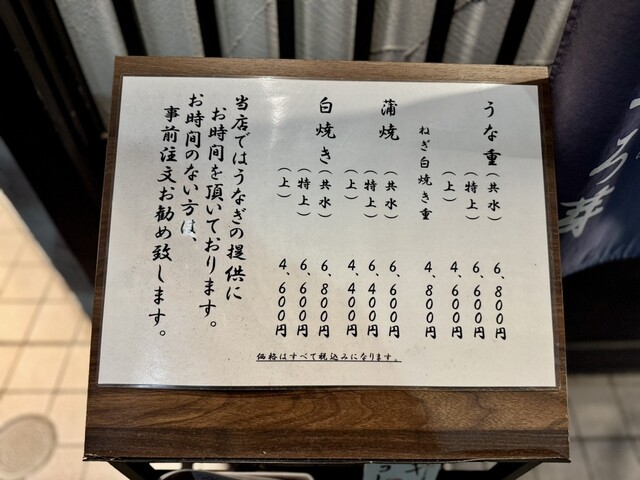 うな重（共水） 6,800円
（特上） 6,600円
（上） 4,600円
ねぎ白焼き重 4,800円
蒲焼（共水） 6,600円
（特上） 6,400円
（上） 4,400円
白焼き（共水） 6,800円
（特上） 6,600円
（上） 4,600円
当店ではうなぎの提供に
お時間を頂いております。
お時間のない方は、
事前注文お勧め致します。
価格はすべて税込みになります。